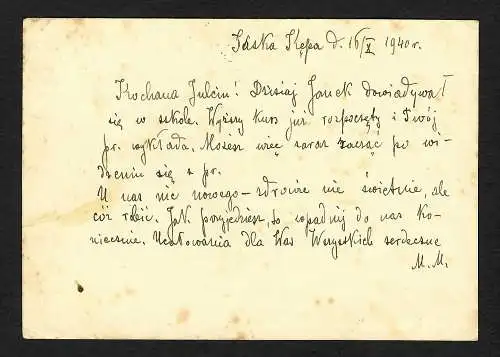 Saska Kępa d. 16/X 1940 r.
Kochana Julciu! Dzisiaj Janek dowiadywał
się w szkole. Wyższy kurs już rozpoczęty i Twój
pr. wykłada. Możesz więc zaraz zacząć po wi-
dzeniu się z pr.
U nas nic nowego - zdrowie nie świetnie, ale
cóż robić. Jak przyjedziesz, to wpadnij do nas ko-
niecznie. Ucałowania dla Was Wszystkich serdeczne
M. M.